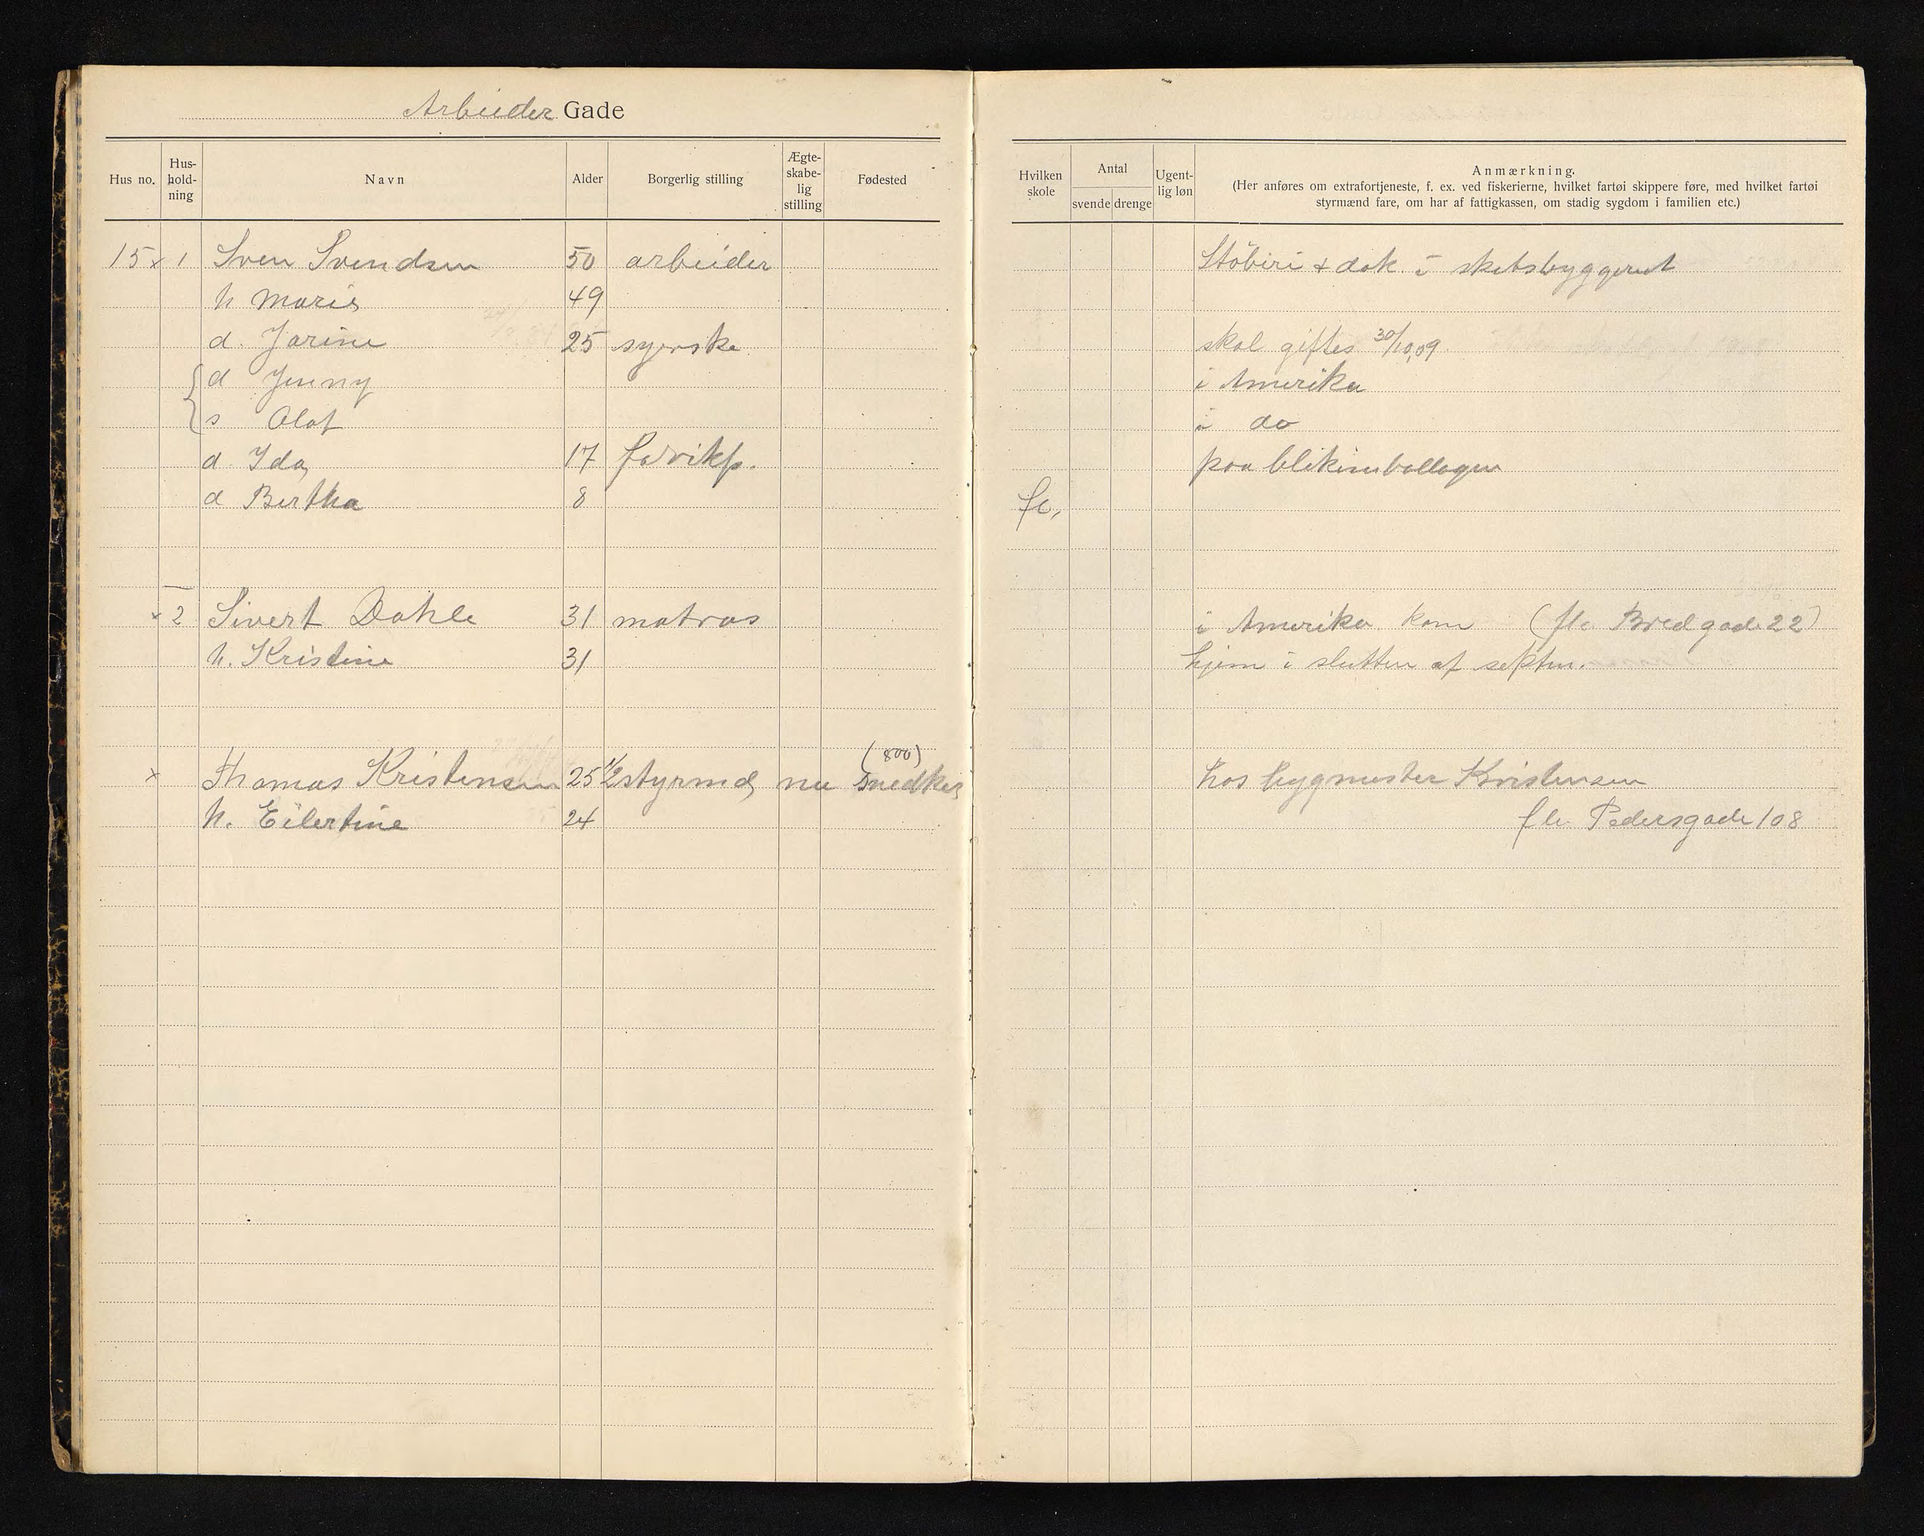 Arbeider Gade
Hus no. Hus-hold-ning Navn Alder Borgerlig stilling Ægte-skabe-lig stilling Fødested Hvilken skole Antal svende drenge Ugent-lig løn Anmærkning.
(Her anføres om extrafortjeneste, f. ex. ved fiskerierne, hvilket fartøi skippere føre, med hvilket fartøi
styrmænd fare, om har af fattigkassen, om stadig sygdom i familien etc.)
15 x 1 Sven Svendsen 50 arbeider Støberi & dok i skibsbyggeriet
h Marie 49
d. Jarine 25 syerske skal giftes 30/10,09.
d Jenny i Amerika
s Olaf i do
d. Ida 17 fabrikp. paa blikemballagen
d Bertha 8 fl,
x 2 Sivert Dahle 31 matros i Amerika kom (fle Bredgade 22)
h. Kristine 31 hjem i slutten af septbr.
(800)
x Thomas Kristensen 25 1/2 styrmd, nu Snedker hos bygmester Kristensen
h. Eilertine 24 fle Pedersgade 108